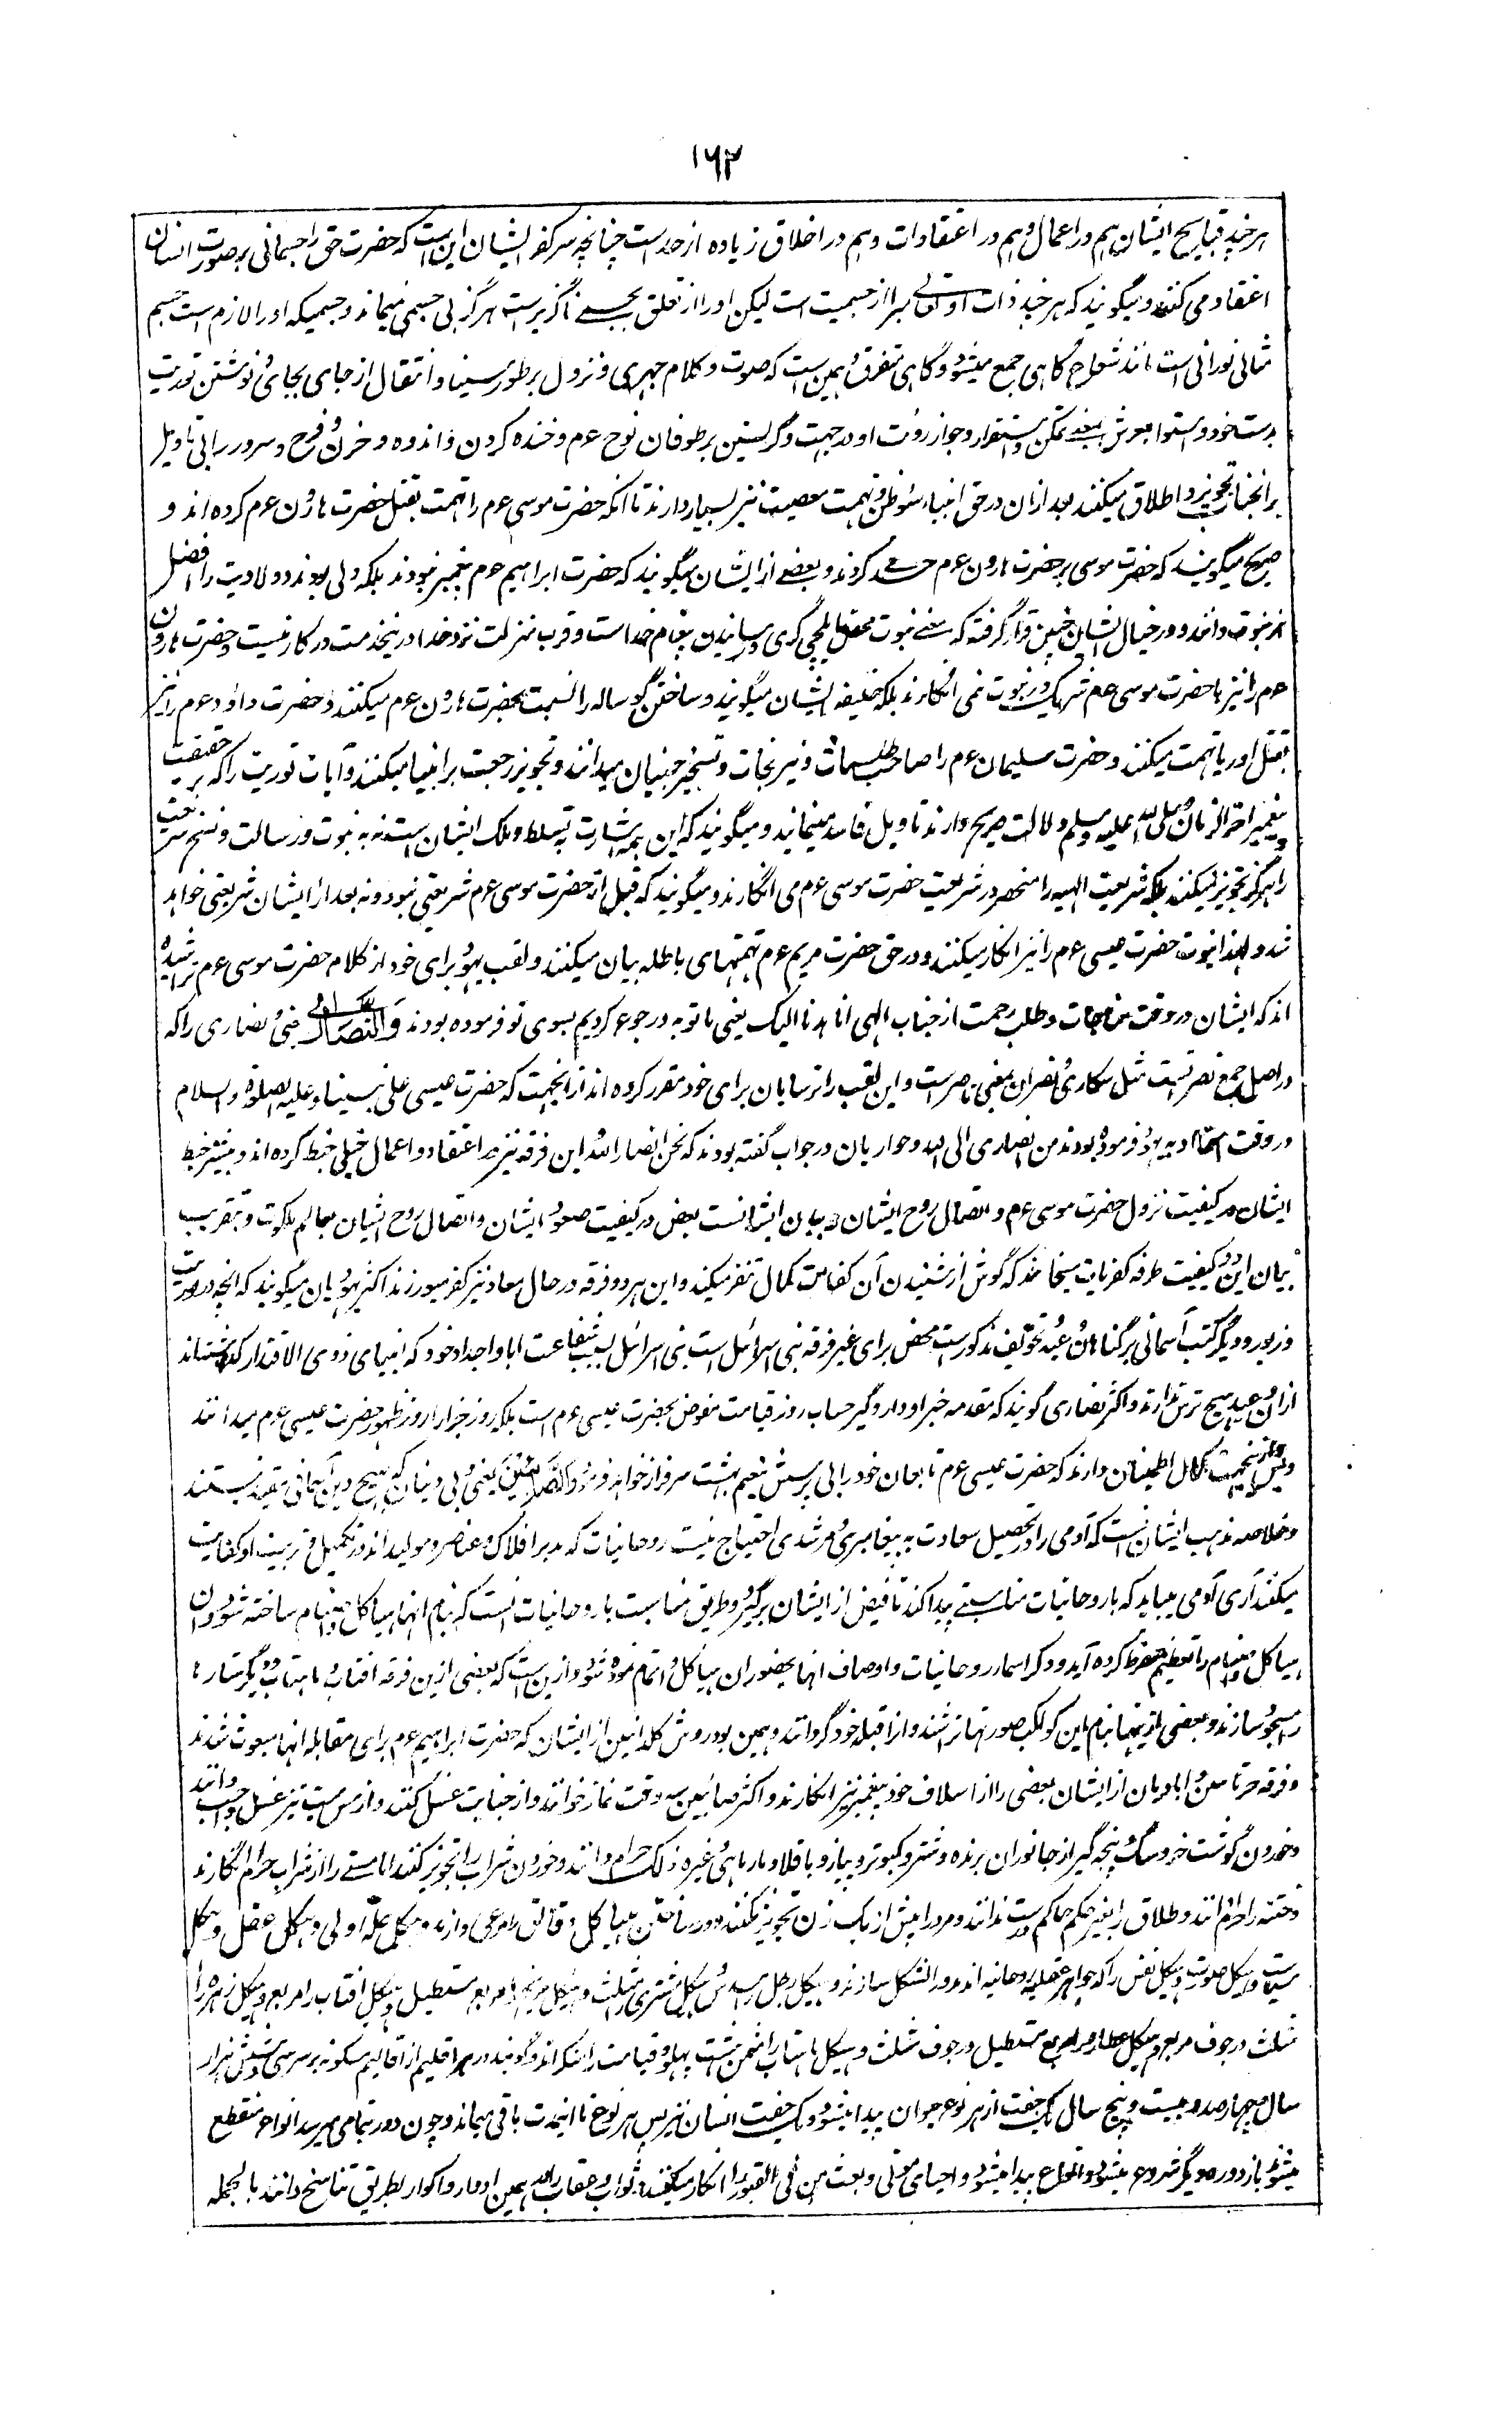 ۱۶۲
هر چند قبایح ایشان هم در اعمال و هم در اعتقادات و هم در اخلاق زیاده از حد است چنانچه سر کفر ایشان این است که حضرت حق را جسمانی بر صورت انسان
اعتقاد می کنند و میگویند که هر چند ذات او تعالی مبرا از جسمیت است لیکن او را از تعلق بجسمے ناگزیر است هرگز بی جسمی نمیماند و جسمیکه او را لازم است جسم
مثالی نورانی است مانند شعاع گاهی جمع میشود و گاهی متفرق و همین است که صوت و کلام جهری و نزول بر طور سینا و انتقال از جای بجای و نوشتن توریت
بدست خود و استوا بعرش بمعنی تمکن و استقرار و جواز رؤت او در جهت و گریستن بر طوفان نوح عم و خنده کردن و اندوه و حزن و فرح و سرور را بی تاویل
بر انجناب تجویز و اطلاق میکنند بعد ازان در حق انبیا سوء ظن و تهمت معصیت نیز بسیار دارند تا انکه حضرت موسی عم را تهمت بقتل حضرت هارون عم کرده اند و
صریح میگویند که حضرت موسی بر حضرت هارون عم حسد کردند و بعضے از ایشان میگویند که حضرت ابراهیم عم پیغمبر نبودند بلکه ولی بودند و ولایت را افضل
از نبوت دانند و در خیال ایشان چنین قرار گرفته که معنے نبوت محض ایلچی گری و رسانیدن پیغام خدا است و قرب منزلت نزد خدا درین خدمت در کار نیست و حضرت هارون
عم را نیز با حضرت موسی عم شریک در نبوت نمی انگارند بلکه خلیفه ایشان میگویند و ساختن گوساله را نسبت بحضرت هارون عم میکنند و حضرت داؤد عم را نیز
بقتل اوریا تهمت میکنند و حضرت سلیمان عم را صاحب طلسمات و نیرنجات و تسخیر جنیان میدانند و تجویز رجعت بر انبیا میکنند و آیات توریت را که بر حقیقت
پیغمبر اخر الزمان صلی الله علیه و سلم دلالت صریح دارند تاویل فاسد مینمایند و میگویند که این همه بشارت به تسلط و ملک ایشان است نه به نبوت و رسالت و نسخ شریعت
را هرگز تجویز نمیکنند بلکه شریعت الهیه را منحصر در شریعت حضرت موسی عم می انگارند و میگویند که قبل از حضرت موسی عم شریعتی نبود و نه بعد از ایشان شریعتی خواهد
شد و لهذا نبوت حضرت عیسی عم را نیز انکار میکنند و در حق حضرت مریم عم تهمتهای باطله بیان میکنند و لقب یهود برای خود از کلام حضرت موسی عم تراشیده
اند که ایشان در وقت مناجات و طلب رحمت از جناب الهی انا هدنا الیک یعنی ما توبه و رجوع کردیم بسوی تو فرموده بودند وَالنَّصَارٰی یعنی و نصاری را که
در اصل جمع نصران است مثل سکاری و نصران بمعنی ناصر است و این لقب را ترسایان برای خود مقرر کرده اند از انجهت که حضرت عیسی علی نبینا و علیه الصلوة و السلام
در وقت از یهود فرموده بودند من انصاری الی الله و حواریان در جواب گفته بودند که نحن انصار الله این فرقه نیز در اعتقاد و اعمال خیلی خبط کرده اند و بیشتر خبط
ایشان در کیفیت نزول حضرت عم و اتصال روح ایشان به بدن ایشانست بعض در کیفیت صعود ایشان و اتصال روح ایشان بعالم ملکوت و بتقریب
بیان این دو کیفیت طرفه کفریات میخایند که گوش از شنیدن آن کفریات کمال تنفر میکند و این هر دو فرقه در حال معاد نیز کفر میورزند اکثر یهودیان میگویند که انچه در توریت
و زبور و دیگر کتب آسمانی بر گناهان وعید و تخویف مذکور است محض برای غیر فرقه بنی اسرائیل است بنی اسرائیل بسبب شفاعت ابا و اجداد خود که انبیای ذوی الاقتدار گذشته اند
ازان وعید هیچ ترس ندارند و اکثر نصاری گویند که مقدمه جزا و دار و گیر حساب روز قیامت مفوض بحضرت عیسی عم است بلکه روز جزا را روز ظهور حضرت عیسی عم میدانند
و ازینجهت کمال اطمینان دارند که حضرت عیسی عم تابعان خود را بی پرسش بنعیم بهشت سرفراز خواهند فرمود وَالصَّابِئِیْنَ یعنی و بی دینان که بهیچ دین آسمانی مقید نیستند
و خلاصه مذهب ایشان انست که آدمی را در تحصیل سعادت به پیغامبری و مرشدی احتیاج نیست روحانیات که مدبر افلاک و عناصر و موالید اند در تکمیل و تربیت او کفایت
میکنند آری آدمی میباید که با روحانیات مناسبتے پیدا کند تا فیض از ایشان برگیرد و طریق مناسبت با روحانیات انست که بنام انها هیاکل و اصنام ساخته شود و آن
هیاکل و اصنام را تعظیم مفرط کرده آید و ذکر اسماء روحانیات و اوصاف انها بحضور ان هیاکل و اصنام نموده شود و ازین است که بعضی ازین فرقه افتاب و ماهتاب و دیگر ستارها
را مسجود سازند و بعضی از اینها بنام این کواکب صورتها تراشند و انرا قبله خود گردانند و همین بود روش کلدانیین از ایشان که حضرت ابراهیم عم برای مقابله انها مبعوث شدند
و فرقه از ایشان بعضی را از اسلاف خود پیغمبر نیز انگارند و اکثر صابئین سه وقت نماز خوانند و از جنابت غسل کنند و از مس میت نیز غسل واجب دانند
و خوردن گوشت خر و سگ و پنجه گیر از جانوران پرنده و شتر و کبوتر و پیاز و باقلا و مار ماهی و غیره ذلک حرام دانند و خوردن شراب را تجویز کنند اما مستے را از شراب حرام انگارند
و ختنه را حرام دانند و طلاق را بغیر حکم حاکم درست ندانند و مرد را بیش از یک زن تجویز نکنند و در ساختن هیاکل دقائق را مرعی دارند و هیکل علة اولی و هیکل عقل و هیکل
سیاست و هیکل صورت و هیکل نفس را که جواهر عقلیه روحانیه اند مدور الشکل سازند و هیکل زحل مسدس و هیکل مشتری مثلث و هیکل مریخ مربع مستطیل و هیکل افتاب را مربع و هیکل زهره را
مثلث در جوف مربع و هیکل عطارد مربع مستطیل در جوف مثلث و هیکل ماهتاب را مثمن هشت پهلو و قیامت را منکر اند و گویند در هر اقلیم از اقالیم مسکونه بر سر سی و شش هزار
سال و چهارصد و بیست و پنج سال یک جفت از هر نوع حیوان پیدا میشود و یک جفت انسان نیز پس هر نوع تا این مدت باقی میماند و چون دور بتمامی میرسد انواع منقطع
میشوند باز دوره دیگر شروع میشود و انواع پیدا میشود و احیای موتی و بعث من فی القبور را انکار میکنند و ثواب و عقاب را در همین ادوار و اکوار بطریق تناسخ دانند بالجمله